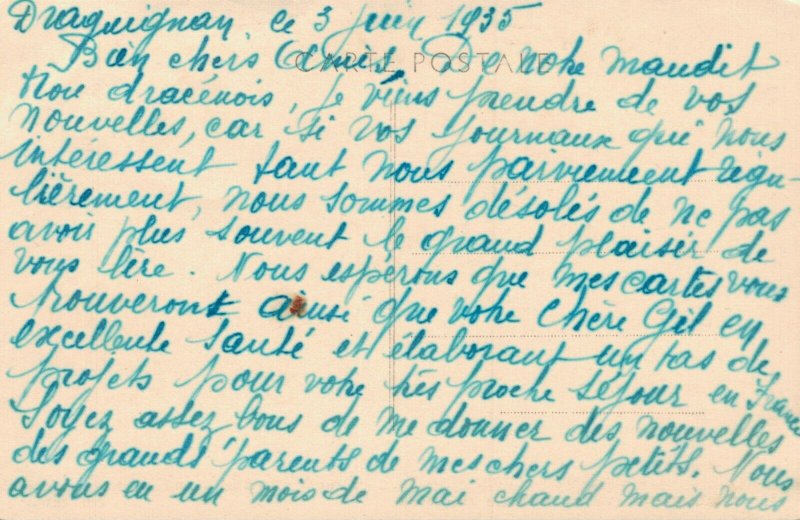 Draguignan, ce 3 Juin 1935
Bien chers Amis, De notre maudit
CARTE POSTALE
trou dracénois, je viens prendre de vos
nouvelles, car si vos journaux qui nous
intéressent tant nous parviennent régu-
lièrement, nous sommes désolés de ne pas
avoir plus souvent le grand plaisir de
vous lire. Nous espérons que mes cartes vous
trouveront ainsi que votre chère Gil en
excellente santé et élaborant un tas de
projets pour votre très proche séjour en France
Soyez assez bons de me donner des nouvelles
des grands'parents de mes chers petits. Nous
avons eu un mois de mai chaud mais nous